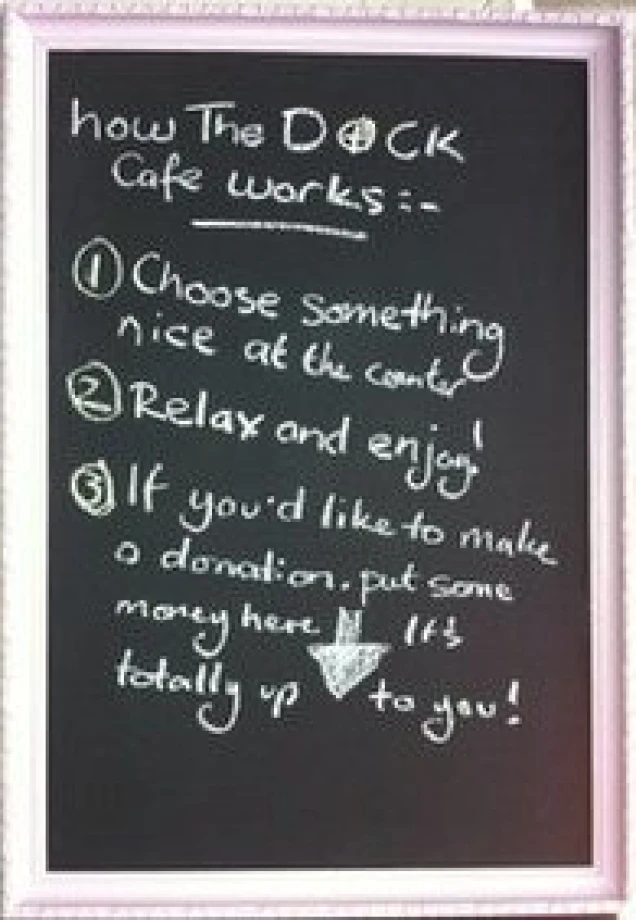 how The DOCK
Cafe works:-
① Choose something
nice at the counter
② Relax and enjoy!
③ If you'd like to make
a donation, put some
money here It's
totally up to you!